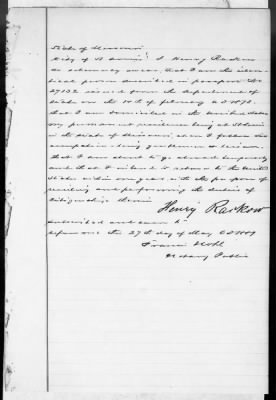 State of Missouri
City of St Louis I Henry Raskow
do solemnly swear, that I am the iden-
tical person described in passport No
27132 issued from the department of
State on the 14th of february AD 1872.
that I am domiciled in the United States
my permanent residence being at St Louis
in the State of Missouri, where I follow the
occupation being gentleman
that I am about to go abroad temporarily
and that I intend to return to the United
States within one year with the purpose of
residing and performing the duties of
Citizenship therein
Henry Raskow
subscribed and sworn to
before me this 27th day of May AD 1889
Francis
Notary Public